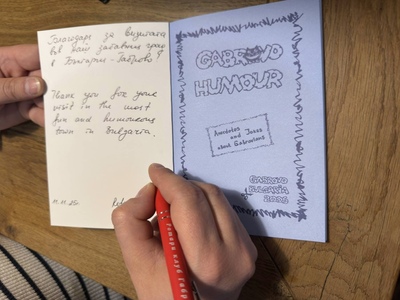 Благодаря за визитата
във най забавния град
в България - Габрово!
Thank you for your
visit in the most
fun and humorous
town in Bulgaria.
GABROVO
HUMOUR
Anecdotes and Jokes
about Gabrovians
GABROVO
BULGARIA